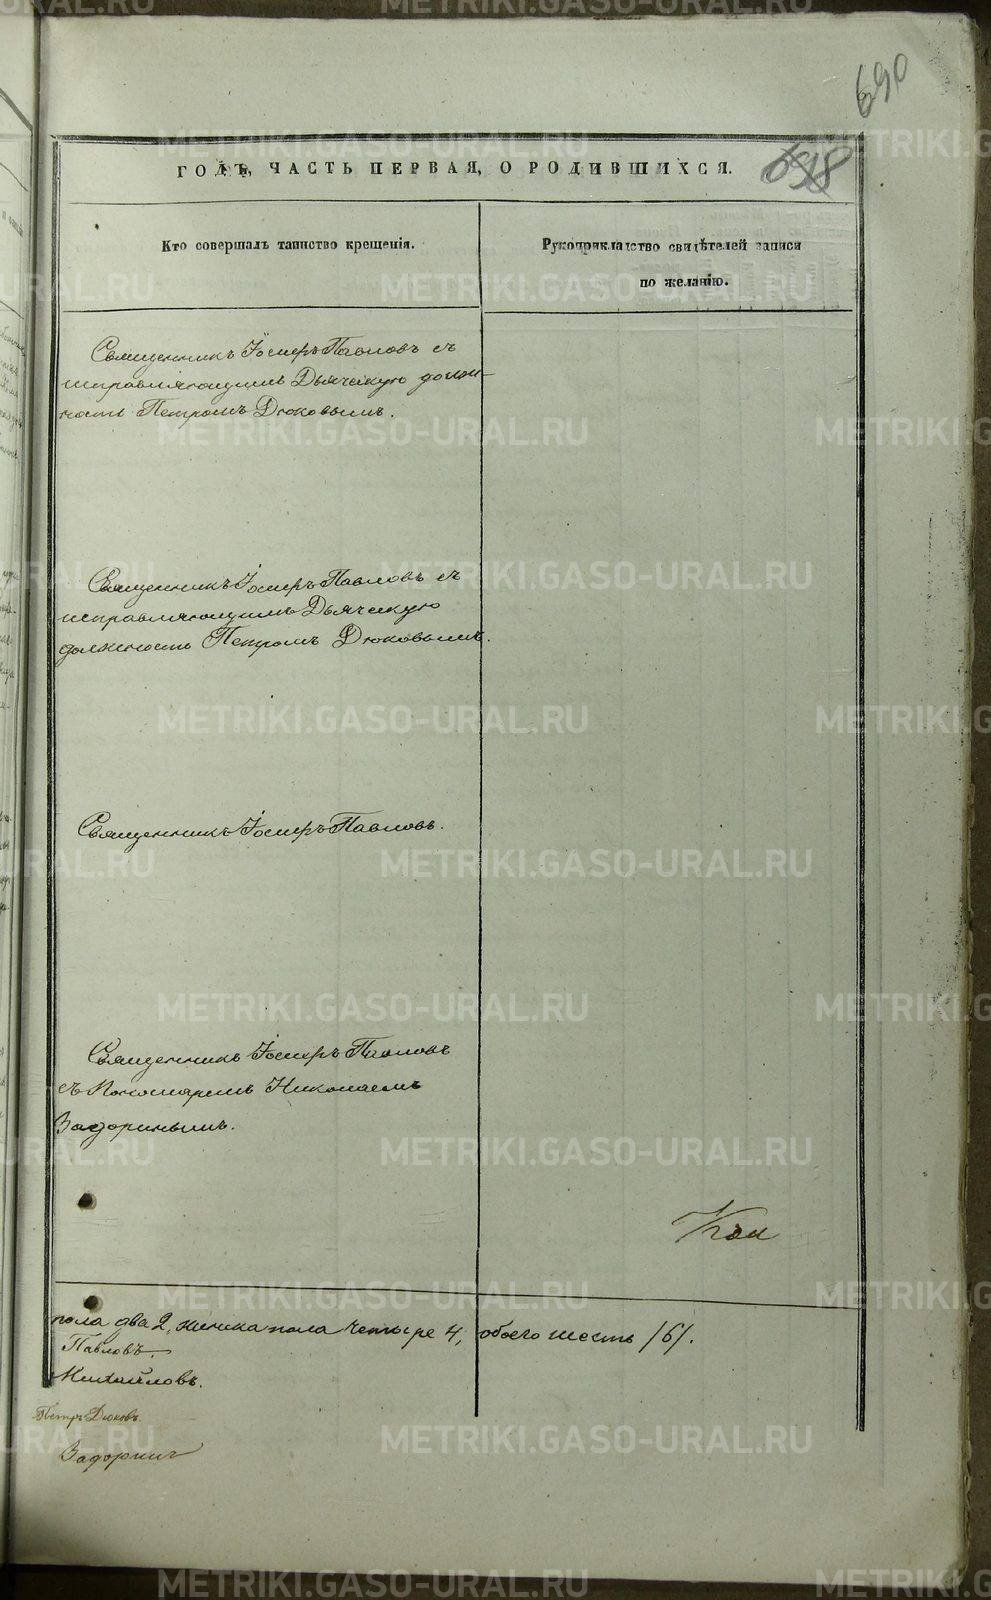 690
ГОДЪ, ЧАСТЬ ПЕРВАЯ, О РОДИВШИХСЯ.
Кто совершалъ таинство крещенія.
Рукоприкладство свидѣтелей записи
по желанію.
Священникъ Іосифъ Павловъ съ
исправляющимъ Дьячекую долж-
ность Петромъ Дюковымъ.
Священникъ Іосифъ Павловъ съ
исправляющимъ Дьячекую
должность Петромъ Дюковымъ.
Священникъ Іосифъ Павловъ.
Священникъ Іосифъ Павловъ
съ Пономаремъ Николаемъ
Задоринымъ.
пола два 2, женска пола четыре 4, обоего шесть /6/.
Павловъ.
Михайловъ.
Петръ Дюковъ.
Задоринъ
METRIKI.GASO-URAL.RU